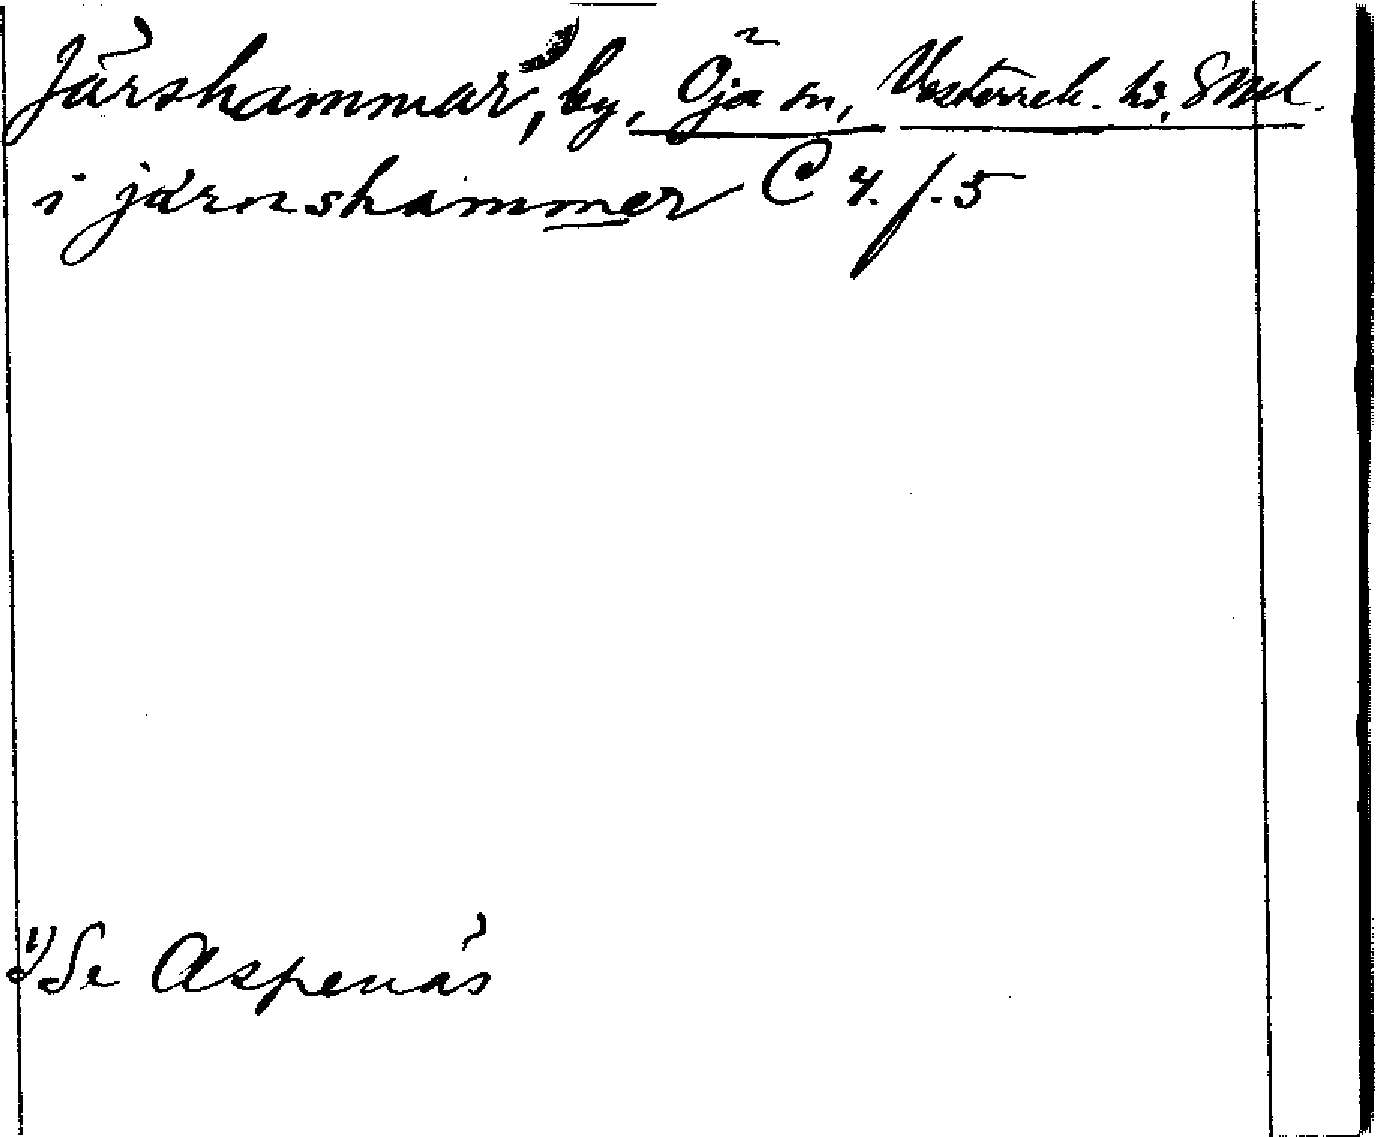 Järshammar, by, Öja sn, Västerrek. hd, Sdml.
i järnshammer C 4. f. 5
1) Se Aspenäs